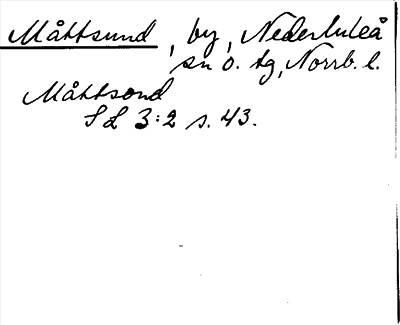 Måttsund, by, Nederluleå
sn o. tg, Norrb. l.
Måttsond
SL 3:2 s. 43.